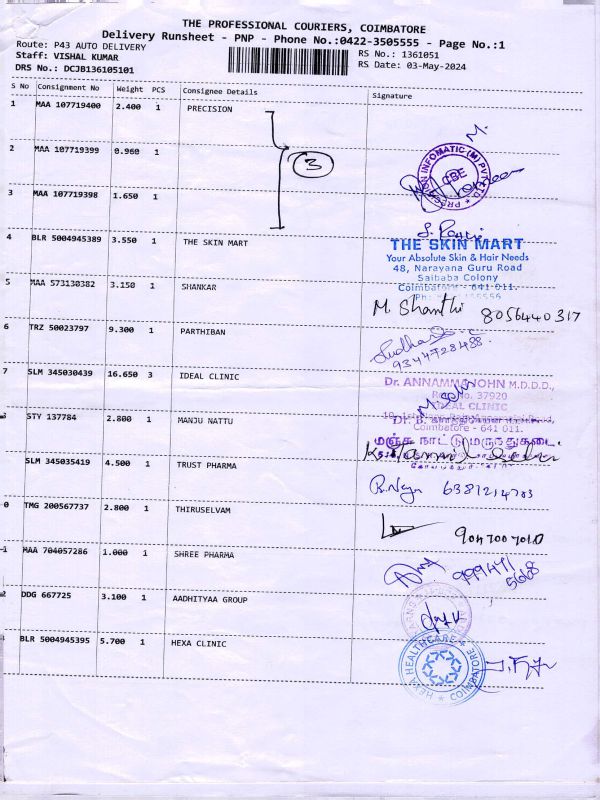 THE PROFESSIONAL COURIERS, COIMBATORE
Delivery Runsheet - PNP - Phone No.:0422-3505555 - Page No.:1
Route: P43 AUTO DELIVERY
RS No.: 1361051
Staff: VISHAL KUMAR
RS Date: 03-May-2024
DRS No.: DCJB136105101
S No Consignment No Weight PCS Consignee Details Signature
1 MAA 107719400 2.400 1 PRECISION
3
2 MAA 107719399 0.960 1
PRECISION INFOMATIC (M) PVT LTD
CBE
3 MAA 107719398 1.650 1
4 BLR 5004945389 3.550 1 THE SKIN MART
THE SKIN MART
Your Absolute Skin & Hair Needs
48, Narayana Guru Road
Saibaba Colony
Coimbatore - 641 011.
5 MAA 573130382 3.150 1 SHANKAR
M. Shanthi 8056440317
6 TRZ 50023797 9.300 1 PARTHIBAN
9344728488.
7 SLM 345030439 16.650 3 IDEAL CLINIC
Dr. ANNAMMA JOHN M.D.D.D.,
No. 37920
IDEAL CLINIC
STY 137784 2.800 1 MANJU NATTU
Coimbatore - 641 011.
மஞ்சு நாட்டு மருந்துகடை
SLM 345035419 4.500 1 TRUST PHARMA
6381214783
0 TMG 200567737 2.800 1 THIRUSELVAM
MAA 704057286 1.000 1 SHREE PHARMA
2 DDG 667725 3.100 1 AADHITYAA GROUP
BLR 5004945395 5.700 1 HEXA CLINIC
HEXA HEALTHCARE
COIMBATORE